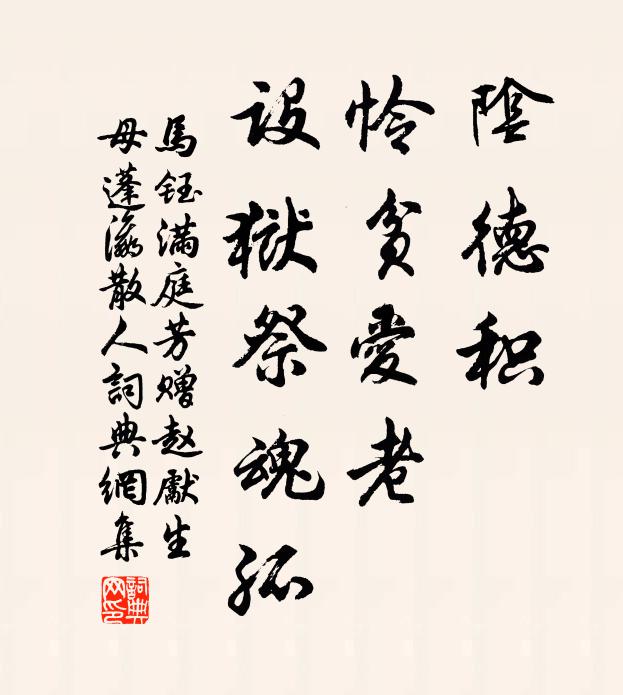 陰德积
怜貧愛老
設獄祭魂孤
馬鈺满庭芳赠赵獻生
母蓬瀛散人詞典網集
詞典网印